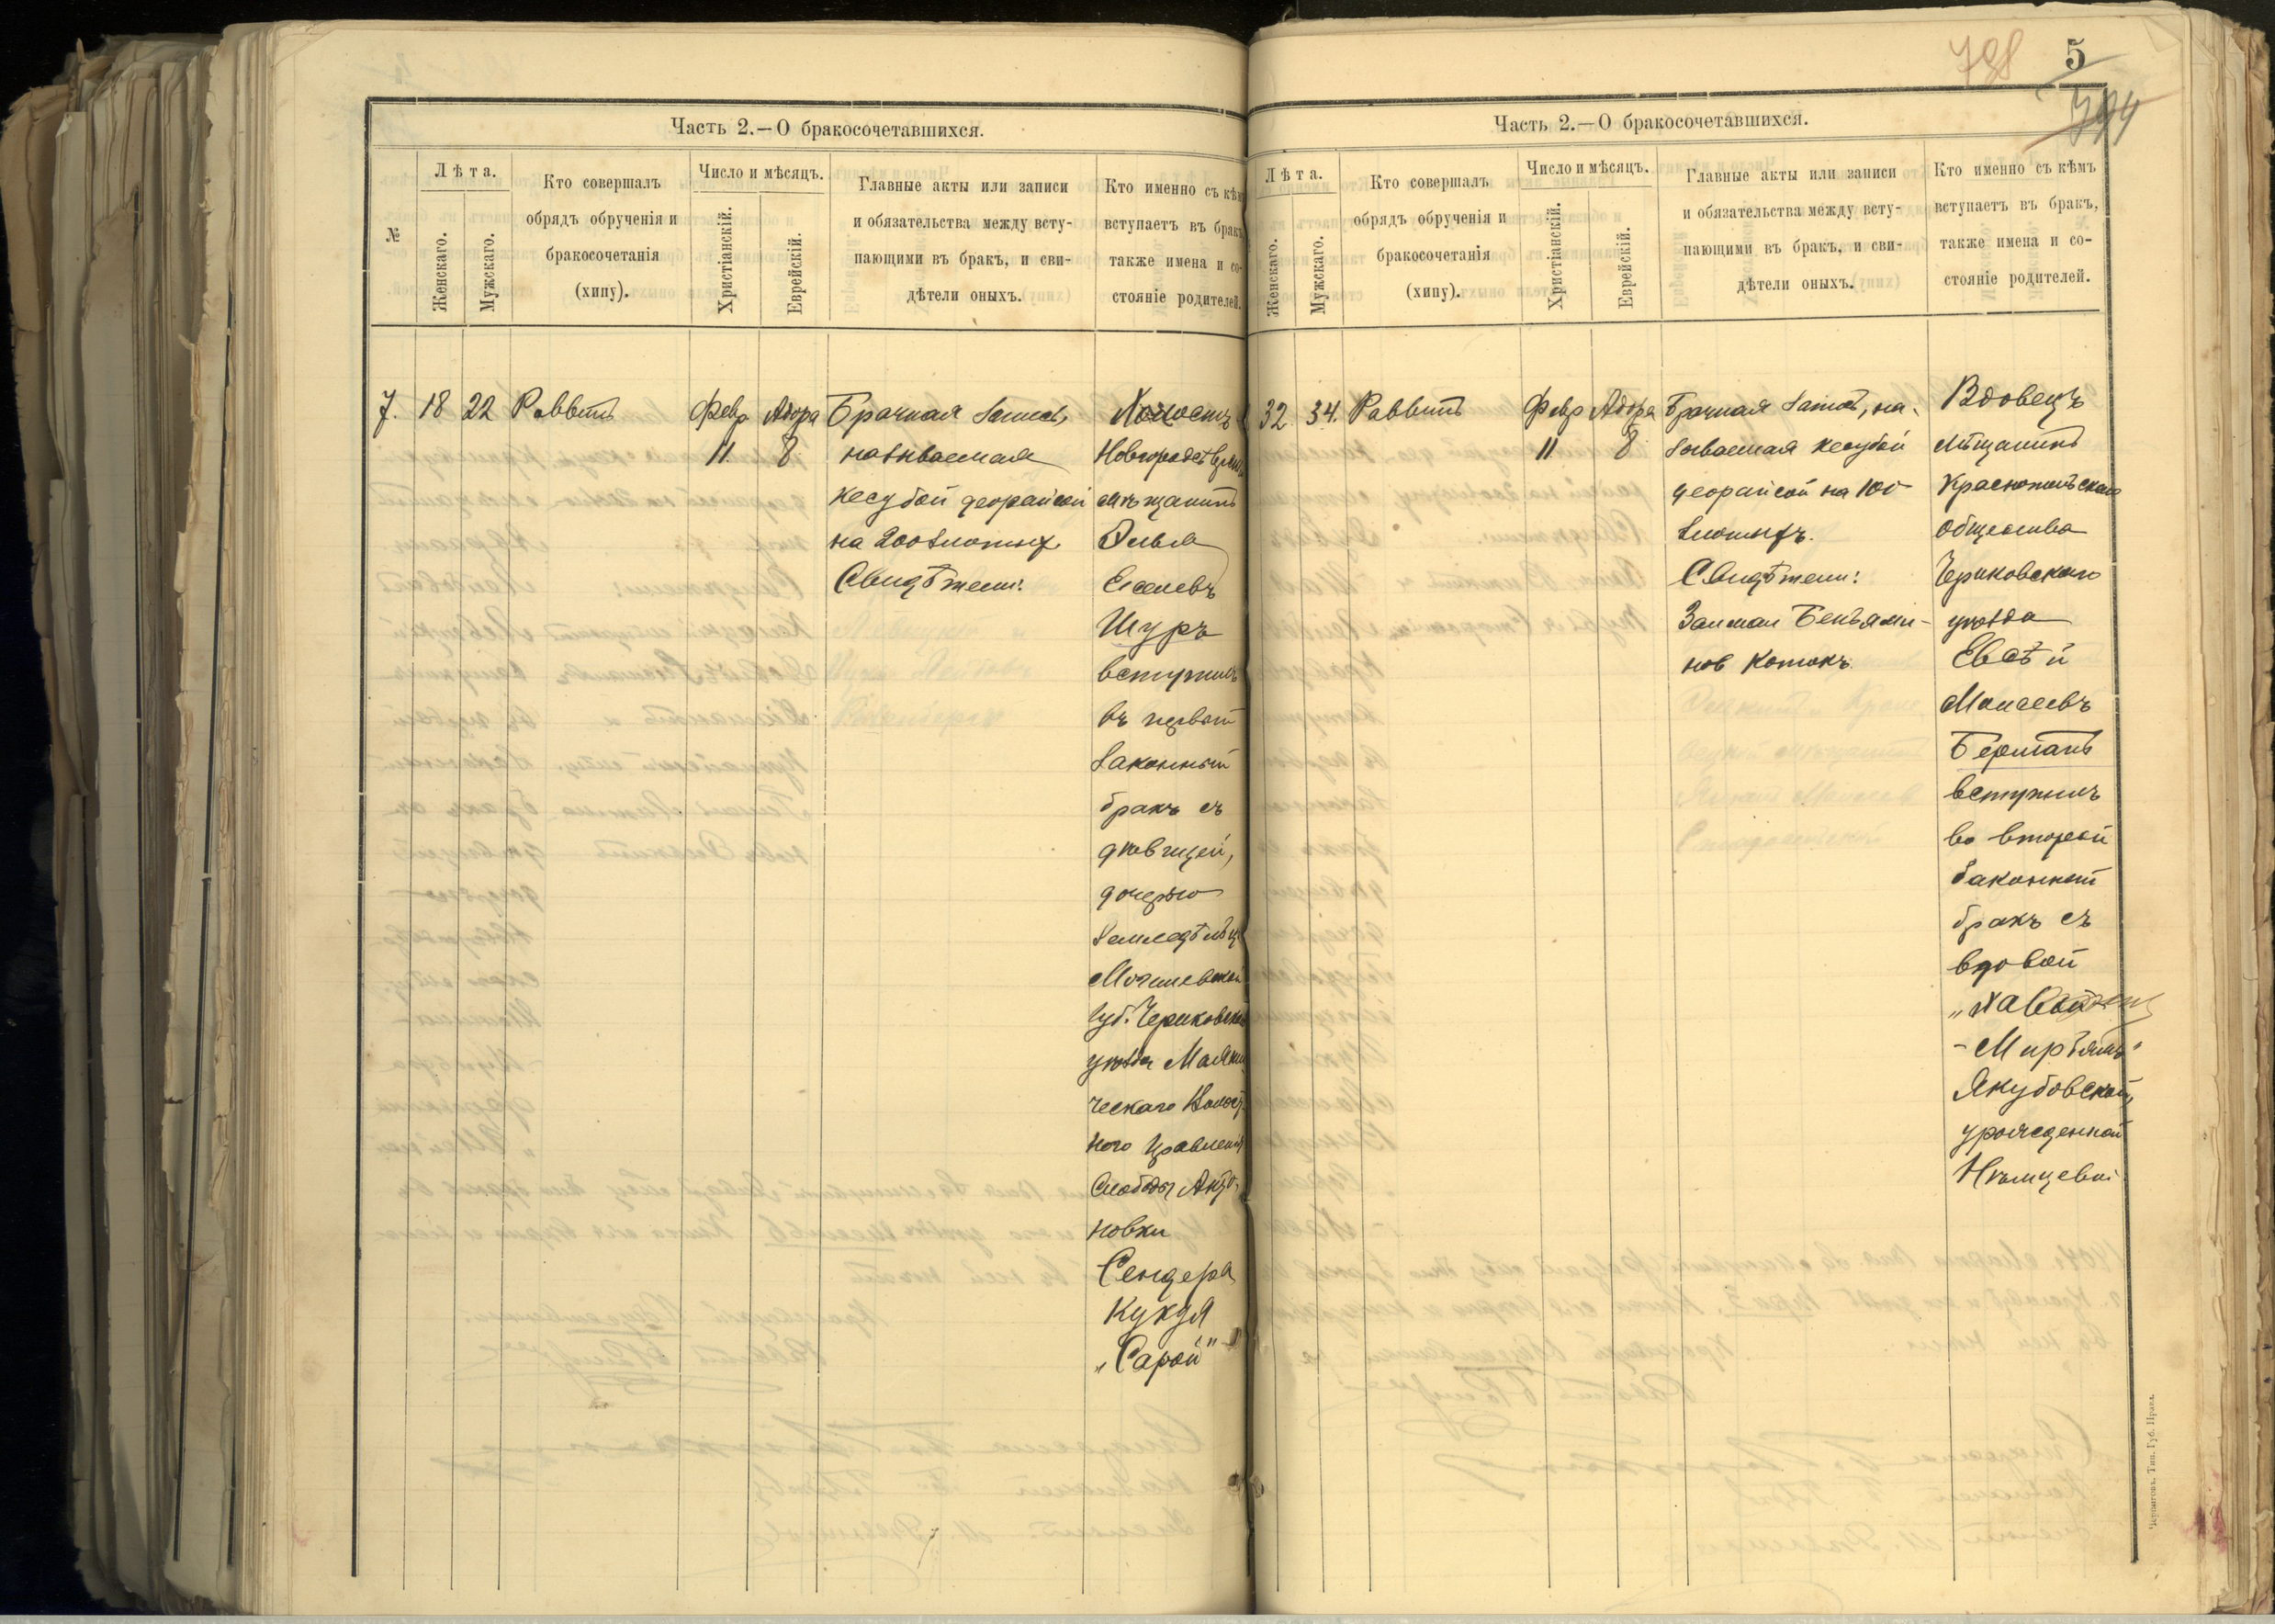 798
5
794
Часть 2.—О бракосочетавшихся.
№
Лѣта.
Женскаго.
Мужскаго.
Кто совершалъ
обрядъ обрученія и
бракосочетанія
(хипу).
Число и мѣсяцъ.
Христіанскій.
Еврейскій.
Главные акты или записи
и обязательства между всту-
пающими въ бракъ, и сви-
дѣтели оныхъ.
Кто именно съ кѣмъ
вступаетъ въ бракъ
также имена и со-
стояніе родителей.
7.
18
22
Раввинъ
Февр
11.
Адора
8
Брачная запись,
называемая
кесубой деорайсой
на 200 злотых.
Свидѣтели:
Холостъ
мѣщанинъ
Эилья
Еселевъ
Шуръ
вступилъ
въ первый
законный
бракъ съ
дѣвицей,
дочерью
Земледѣльца
Могилевской
Губ. Чериковска
уѣзда
ческаго Волост
ного Правленія
Слободы
новки
Сендера
Кукуя
„Сарой"
Часть 2.—О бракосочетавшихся.
Лѣта.
Женскаго.
Мужскаго.
Кто совершалъ
обрядъ обрученія и
бракосочетанія
(хипу).
Число и мѣсяцъ.
Христіанскій.
Еврейскій.
Главные акты или записи
и обязательства между всту-
пающими въ бракъ, и сви-
дѣтели оныхъ.
Кто именно съ кѣмъ
вступаетъ въ бракъ,
также имена и со-
стояніе родителей.
32
34.
Раввинъ
Февр
11
Адора
8
Брачная запись, на-
зываемая кесубой
деорайсой на 100
злотыхъ.
Свидѣтели:
Залман Беньями-
нов Котокъ
Вдовецъ
мѣщанинъ
Краснопольскаго
общества
Чериковскаго
уѣзда
Евсѣй
Моисеевъ
Берманъ
вступилъ
во второй
законный
бракъ съ
вдовой
-Мирьямъ"
Якубовской,
урожденной
Нѣмцевой
Черниговъ. Тип. Губ. Правл.